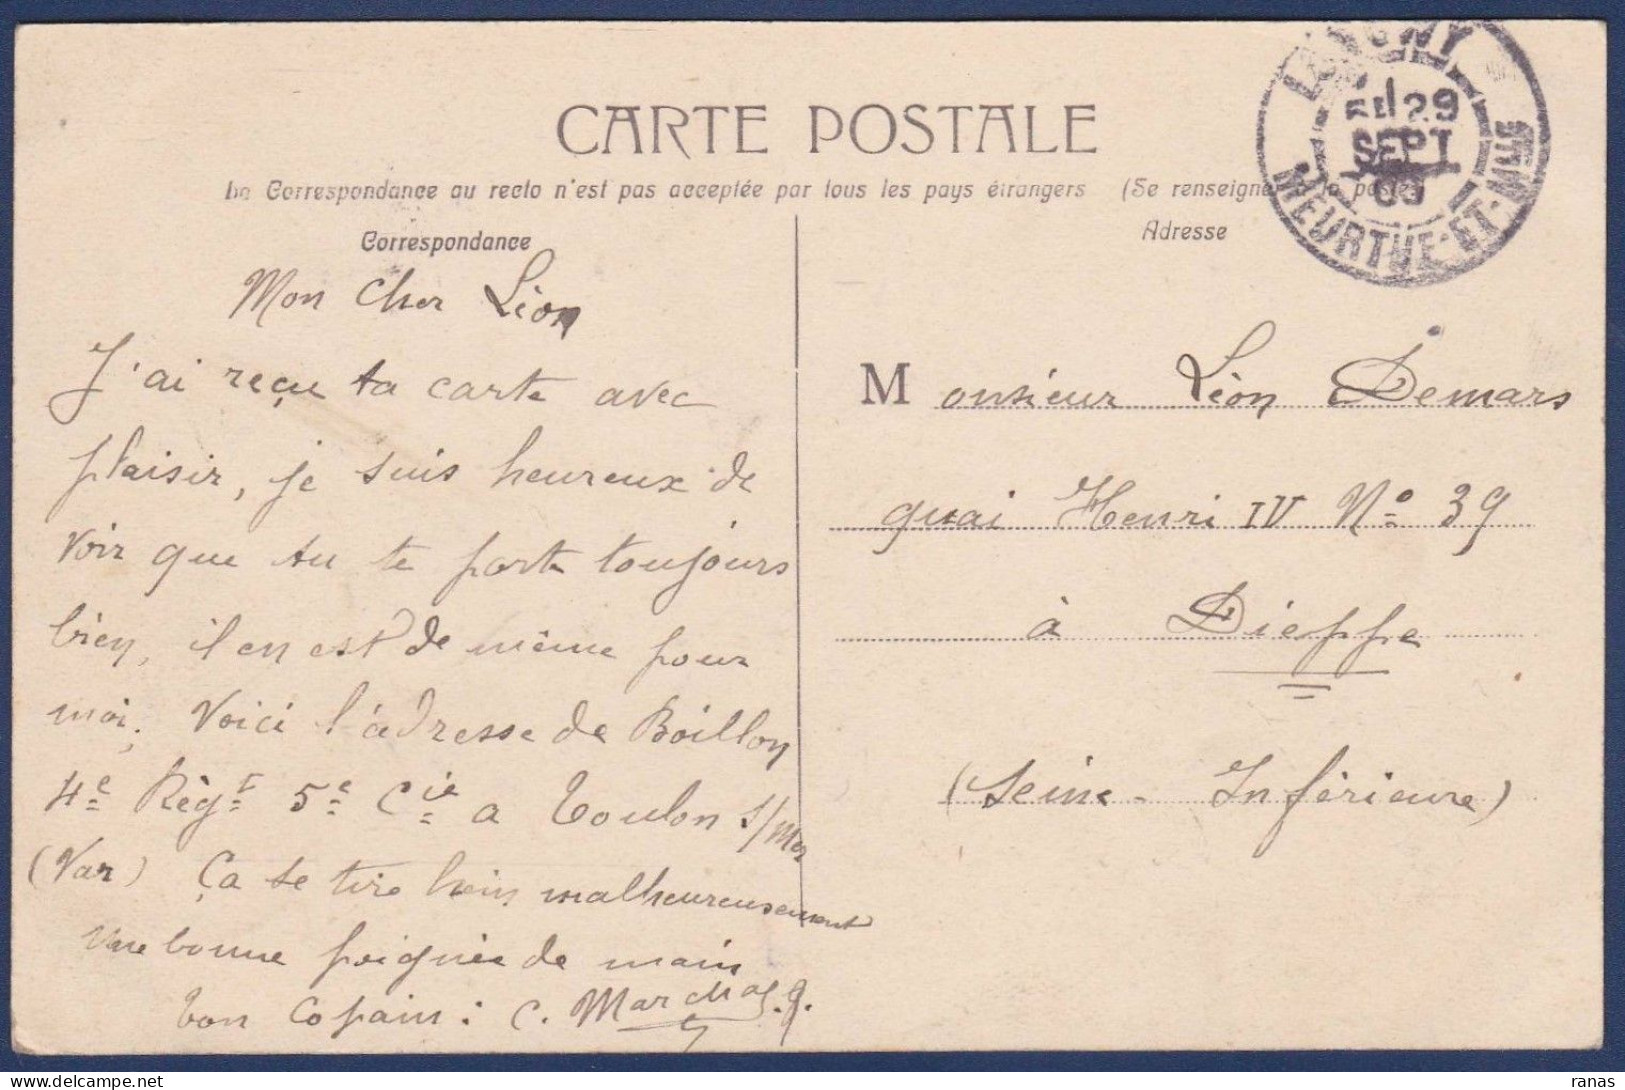 CARTE POSTALE
La Correspondance au recto n'est pas acceptée par tous les pays étrangers (Se renseigner à la poste)
Correspondance
Adresse
LONGWY
29
SEPT
MEURTHE-ET-MLLE
Mon cher Léon
J'ai reçu ta carte avec
plaisir, je suis heureux de
voir que tu te porte toujours
bien, il en est de même pour
moi. Voici l'adresse de Boillon
4e Régt 5e Cie a Toulon s/Mer
(Var) Ça se tire hein malheureusement
Une bonne poignée de main
ton Copain : C. Marchal. J.
Monsieur Léon Demars
quai Henri IV No 39
à Dieppe
(Seine-Inférieure)
ranas